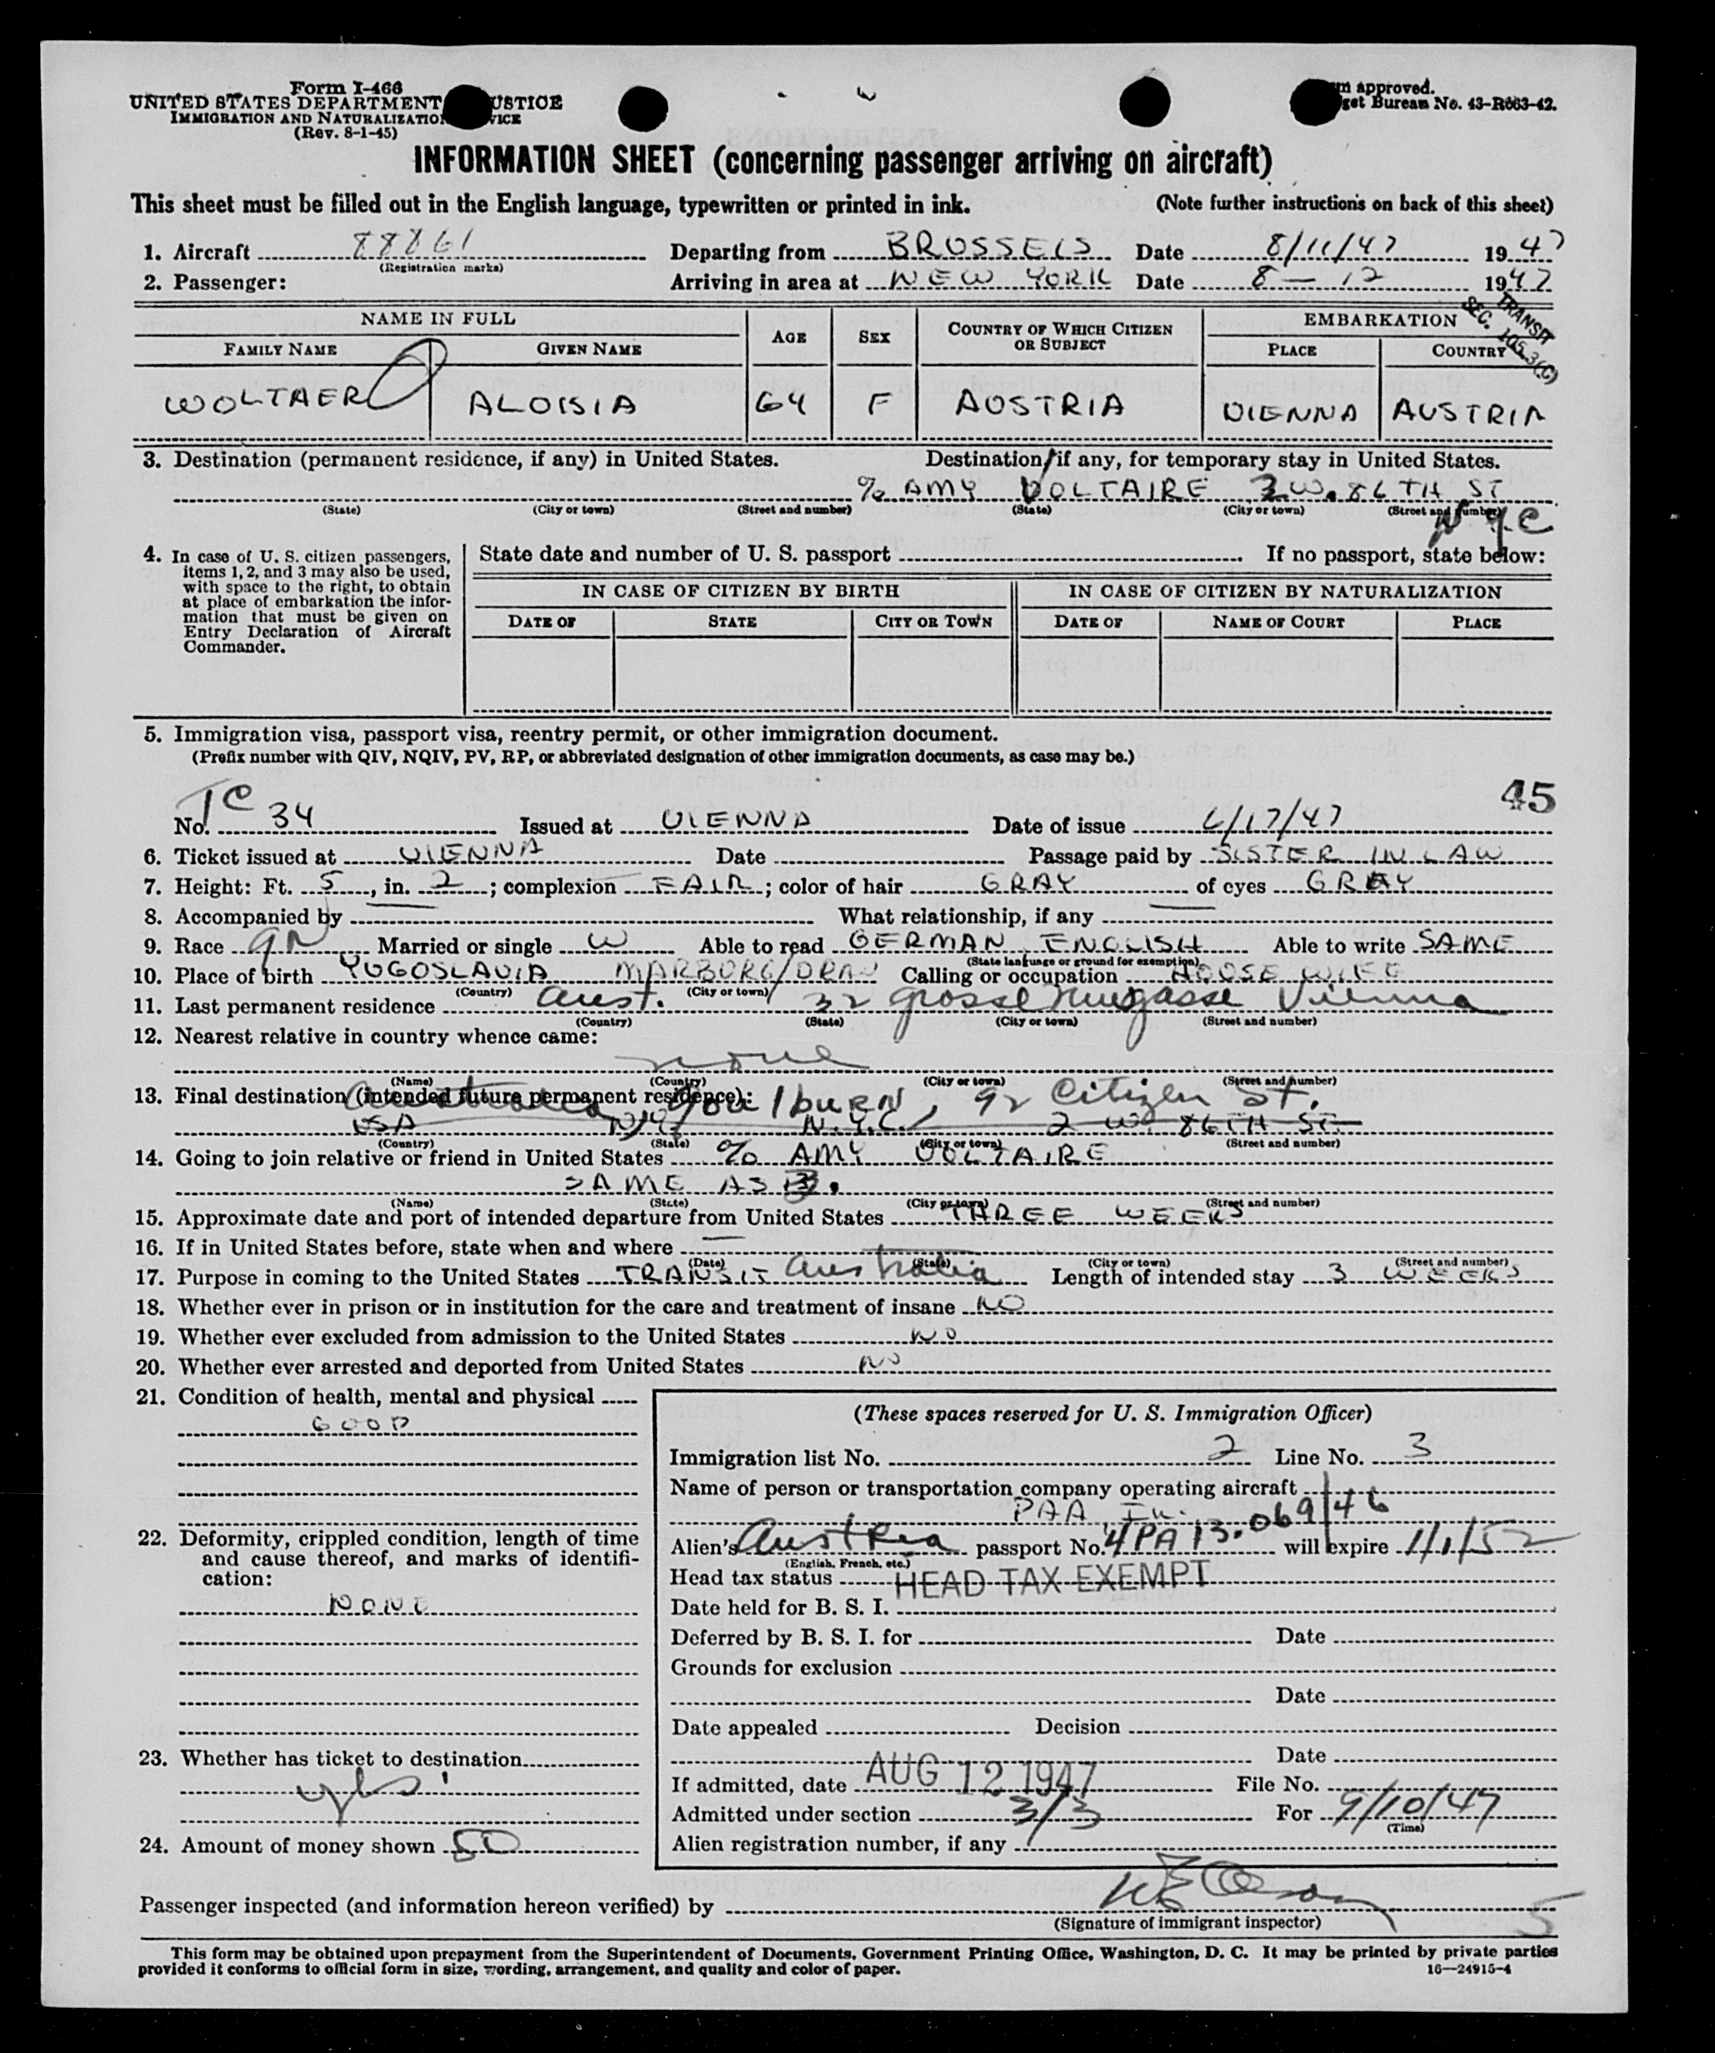 Form I-466
UNITED STATES DEPARTMENT USTICE
IMMIGRATION AND NATURALIZATIO VICE
(Rev. 8-1-45)
m approved.
get Bureau No. 43-R063-42.
INFORMATION SHEET (concerning passenger arriving on aircraft)
This sheet must be filled out in the English language, typewritten or printed in ink. (Note further instructions on back of this sheet)
1. Aircraft 88861 Departing from BRUSSELS Date 8/11/47 1947
(Registration marks)
2. Passenger: Arriving in area at NEW YORK Date 8-12 1947
TRANSIT
SEC. 105.3(C)
NAME IN FULL AGE SEX COUNTRY OF WHICH CITIZEN OR SUBJECT EMBARKATION
FAMILY NAME GIVEN NAME PLACE COUNTRY
WOLTAER ALOISIA 64 F AUSTRIA VIENNA AUSTRIA
3. Destination (permanent residence, if any) in United States. Destination, if any, for temporary stay in United States.
% AMY VOLTAIRE 2 W. 86TH ST
(State) (City or town) (Street and number) (State) (City or town) (Street and number)
NYC
4. In case of U. S. citizen passengers, items 1, 2, and 3 may also be used, with space to the right, to obtain at place of embarkation the information that must be given on Entry Declaration of Aircraft Commander.
State date and number of U. S. passport If no passport, state below:
IN CASE OF CITIZEN BY BIRTH IN CASE OF CITIZEN BY NATURALIZATION
DATE OF STATE CITY OR TOWN DATE OF NAME OF COURT PLACE
5. Immigration visa, passport visa, reentry permit, or other immigration document.
(Prefix number with QIV, NQIV, PV, RP, or abbreviated designation of other immigration documents, as case may be.)
45
No. TC 34 Issued at VIENNA Date of issue 6/17/47
6. Ticket issued at VIENNA Date Passage paid by SISTER IN LAW
7. Height: Ft. 5, in. 2; complexion FAIR; color of hair GRAY of eyes GRAY
8. Accompanied by — What relationship, if any —
9. Race Married or single W Able to read GERMAN ENGLISH Able to write SAME
(State language or ground for exemption)
10. Place of birth YUGOSLAVIA MARBURG/DRAU Calling or occupation HOUSE WIFE
(Country) (City or town)
11. Last permanent residence Aust. 32 Grosse Neugasse Vienna
(Country) (State) (City or town) (Street and number)
12. Nearest relative in country whence came:
none
(Name) (Country) (City or town) (Street and number)
13. Final destination (intended future permanent residence):
Australia Goulburn, 92 Citizen St.
USA N.Y. N.Y.C. 2 W. 86TH ST.
(Country) (State) (City or town) (Street and number)
14. Going to join relative or friend in United States % AMY VOLTAIRE
SAME AS 3.
(Name) (State) (City or town) (Street and number)
15. Approximate date and port of intended departure from United States THREE WEEKS
16. If in United States before, state when and where —
(Date) (State) (City or town) (Street and number)
17. Purpose in coming to the United States TRANSIT Australia Length of intended stay 3 WEEKS
18. Whether ever in prison or in institution for the care and treatment of insane NO
19. Whether ever excluded from admission to the United States NO
20. Whether ever arrested and deported from United States NO
21. Condition of health, mental and physical
GOOD
22. Deformity, crippled condition, length of time and cause thereof, and marks of identification:
NONE
23. Whether has ticket to destination
yes
24. Amount of money shown 50
(These spaces reserved for U. S. Immigration Officer)
Immigration list No. 2 Line No. 3
Name of person or transportation company operating aircraft
PAA In.
Alien's Austria passport No. 4PA 13.069/46 will expire 1/1/52
(English, French, etc.)
Head tax status HEAD TAX EXEMPT
Date held for B. S. I.
Deferred by B. S. I. for Date
Grounds for exclusion
Date
Date appealed Decision
Date
If admitted, date AUG 12 1947 File No.
Admitted under section 3/3 For 9/10/47
(Time)
Alien registration number, if any
Passenger inspected (and information hereon verified) by
(Signature of immigrant inspector)
5
This form may be obtained upon prepayment from the Superintendent of Documents, Government Printing Office, Washington, D. C. It may be printed by private parties
provided it conforms to official form in size, wording, arrangement, and quality and color of paper. 16—24915-4